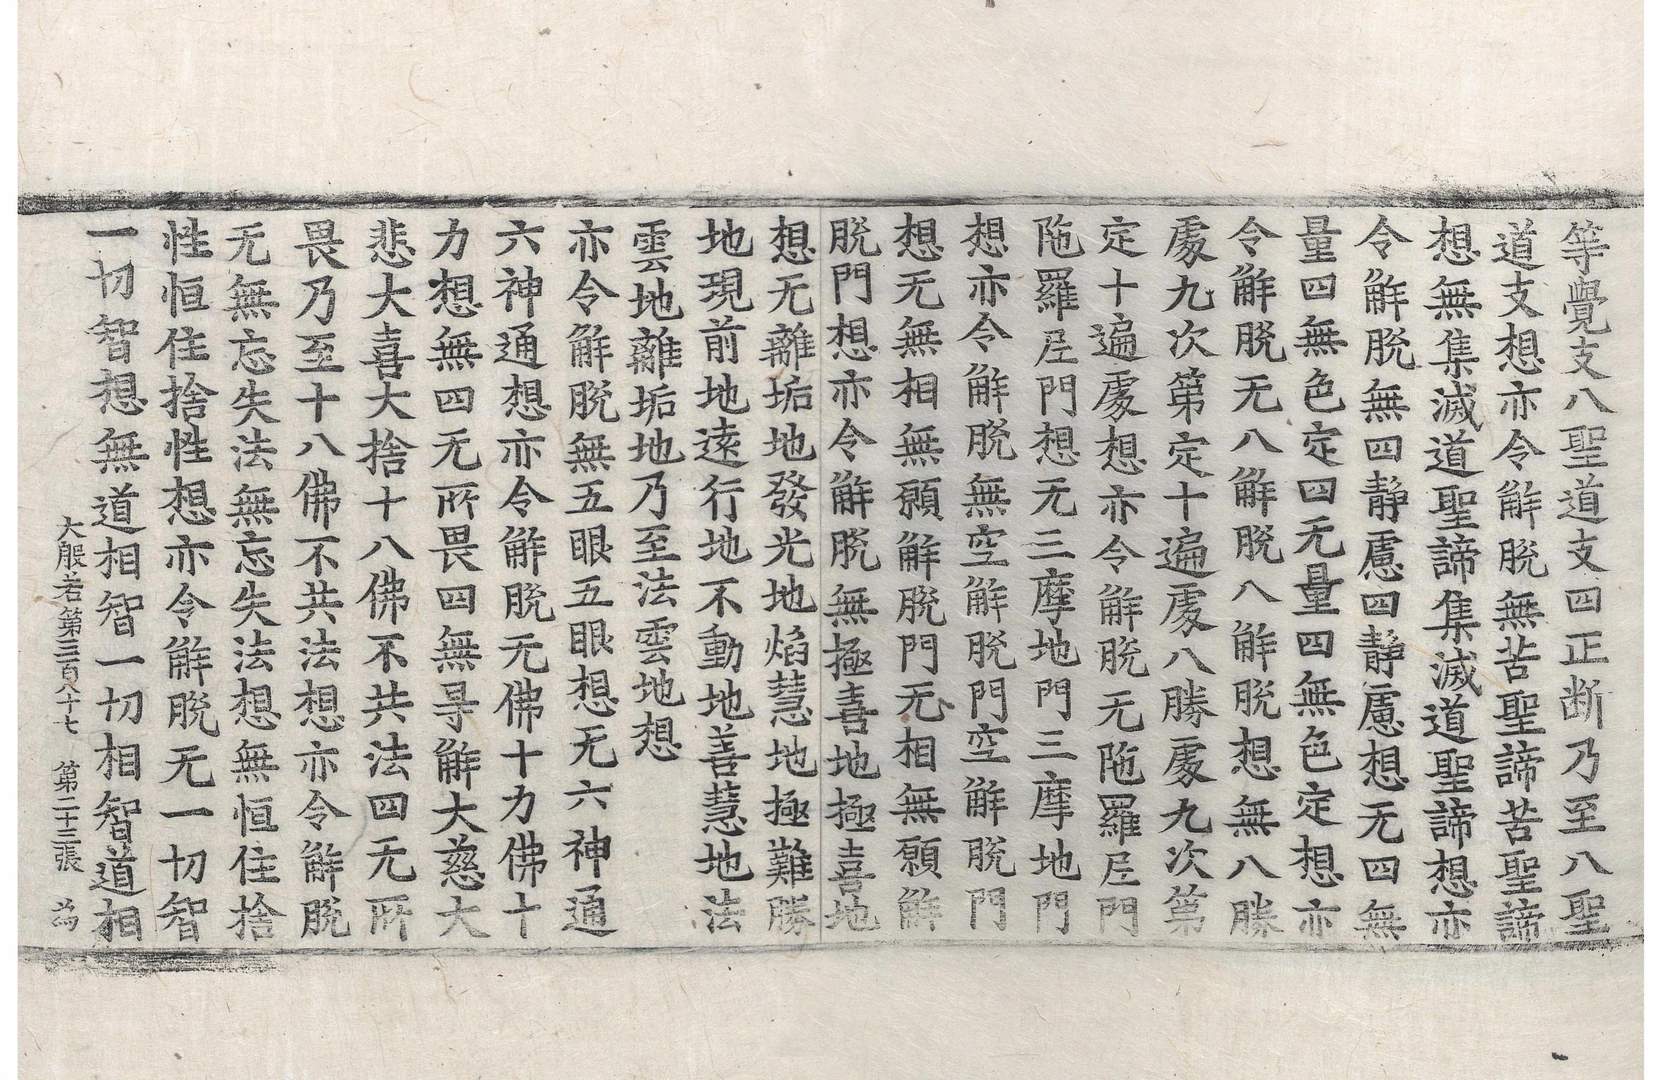 等覺支八聖道支四正断乃至八聖
道支想亦令解脱無苦聖諦苦聖諦
想無集滅道聖諦集滅道聖諦想亦
令解脱無四靜慮四靜慮想无四無
量四無色定四无量四無色定想亦
令解脱无八解脱八解脱想無八勝
處九次第定十遍處八勝處九次第
定十遍處想亦令解脱无陁羅尼門
陁羅尼門想无三摩地門三摩地門
想亦令解脱無空解脱門空解脱門
想无無相無願解脱門无相無願解
脱門想亦令解脱無極喜地極喜地
想无離垢地發光地焰慧地極難勝
地現前地遠行地不動地善慧地法
雲地離垢地乃至法雲地想
亦令解脱無五眼五眼想无六神通
六神通想亦令解脱无佛十力佛十
力想無四无所畏四無㝵解大慈大
悲大喜大捨十八佛不共法四无所
畏乃至十八佛不共法想亦令解脱
无無忘失法無忘失法想無恒住捨
性恒住捨性想亦令解脱无一切智
一切智想無道相智一切相智道相
大般若第三百八十七　第二十三張　為